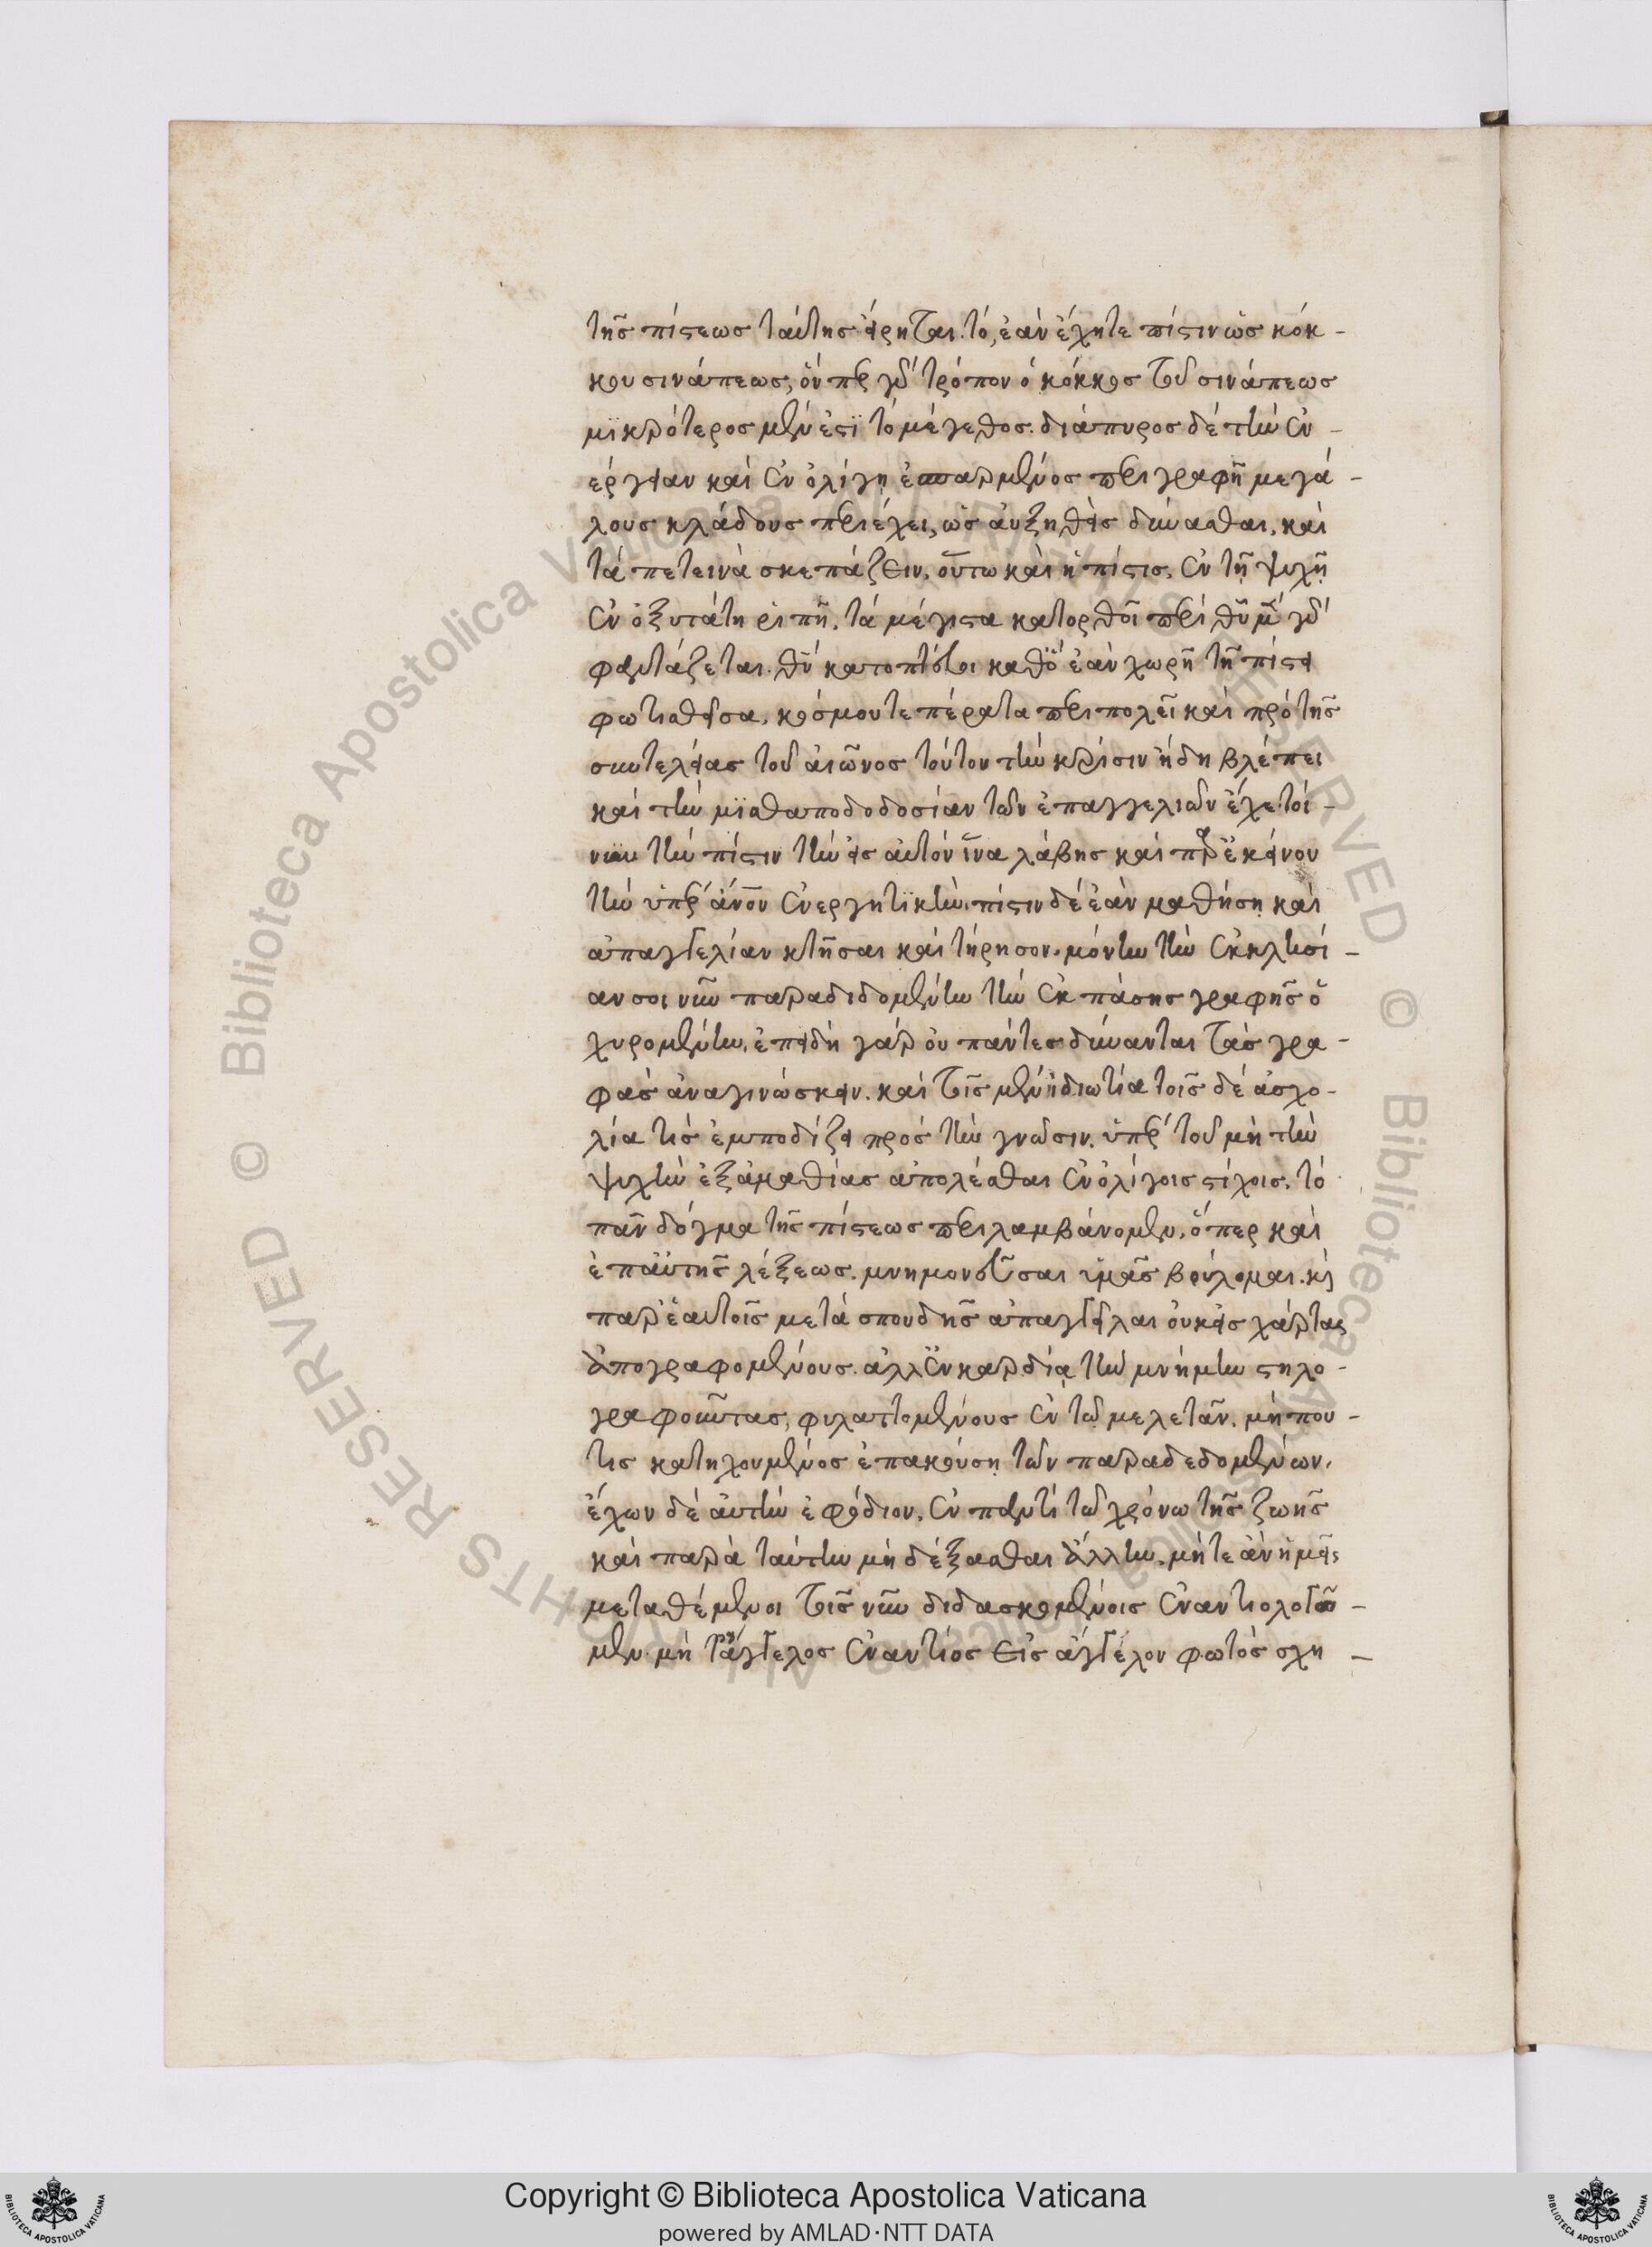 τῆς πίστεως ταύτης εἴρηται. τό, ἐάν ἔχητε πίστιν ὡς κόκ-
κου σινάπεως, ὅν περ γὰρ τρόπον ὁ κόκκος τοῦ σινάπεως
μϊκρότερος μέν ἐστϊ τό μέγεθος. διάπυρος δέ τήν ἐν-
έργειαν καί ἐν ὀλίγῃ ἐσπαρμένος περιγραφῇ μεγά-
λους κλάδους περιέχει, ὡς ἀυξηθεὶς δύνασθαι, καὶ
τά πετεινὰ σκεπάζειν. οὕτω καὶ ἡ πίστις, ἐν τῇ ψυχῇ
ἐν ὀξυτάτη ῥιπῇ. τά μέγιστα κατορθοῖ περί θῦ μὲν γὰρ
φαντάζεται. θν́ κατοπτεύει καθὅ ἐάν χωρῇ τῇ πίστει
φωτισθεῖσα, κόσμου τε πέρατα περιπολεῖ καὶ πρό τῆς
συντελείας τοῦ ἀιῶνος τούτου τήν κρίσιν ἤδη βλέπει
καί τήν μϊσθαποδοδοσίαν τῶν ἐπαγγελιῶν ἔχε τοί-
νυν τήν πίστιν τήν εἰς ἀυτόν ἵνα λάβῃς καί παρ ἐκείνου
τήν ὑπὲρ ἄνον ἐνεργητϊκήν. πίστιν δέ ἐὰν μαθήσῃ καὶ
ἀπαγγελίαν κτῆσαι καί τήρησον. μόνην τήν ἐκκλησί-
αν σοι νῦν παραδιδομένην τήν ἐκ πάσης γραφῆς ὀ
χυρομένην. ἐπειδή γάρ ὀυ πάντες δύνανται τάς γρα-
φάς ἀναγινώσκειν. καί τοῖς μέν ἠδιωτία τοῖς δέ ἀσχο-
λία τίς ἐμποδίζει πρός τήν γνῶσιν. ὑπὲρ τοῦ μή τήν
ψυχήν ἐξἀμαθίας ἀπολέσθαι ἐν ὀλίγοις στίχοις. τό
πᾶν δόγμα τῆς πίστεως περιλαμβάνομεν. ὅπερ καὶ
ἐπἀυτῆς λέξεως. μνημονεῦσαι ὑμᾶς βούλομαι. κὶ
παρἑαυτοῖς μετά σπουδῆς ἀπαγγεῖλαι ὀυκεἰς χάρτας
ἀπογραφομένους. ἀλλἐν καρδίᾳ τήν μνήμην στηλο-
γραφοῦντας, φυλαττομένους ἐν τῷ μελετᾶν. μή που-
τις κατηχουμένος ἐπακούσῃ τῶν παραδεδομένων.
ἔχων δέ ἀυτήν ἐφόδιον. ἐν παντί τῷ χρόνω τῆς ζωῆς
καί παρὰ ταύτην μή δέξασθαι ἄλλην. μήτε ἀν ἡμεῖς
μεταθέμενοι τοῖς νῦν διδασκομένοις ἐναντιολογῶ-
μεν. μή τἄγγελος ἐναντίος εἰς ἀγγέλον φωτός σχη -